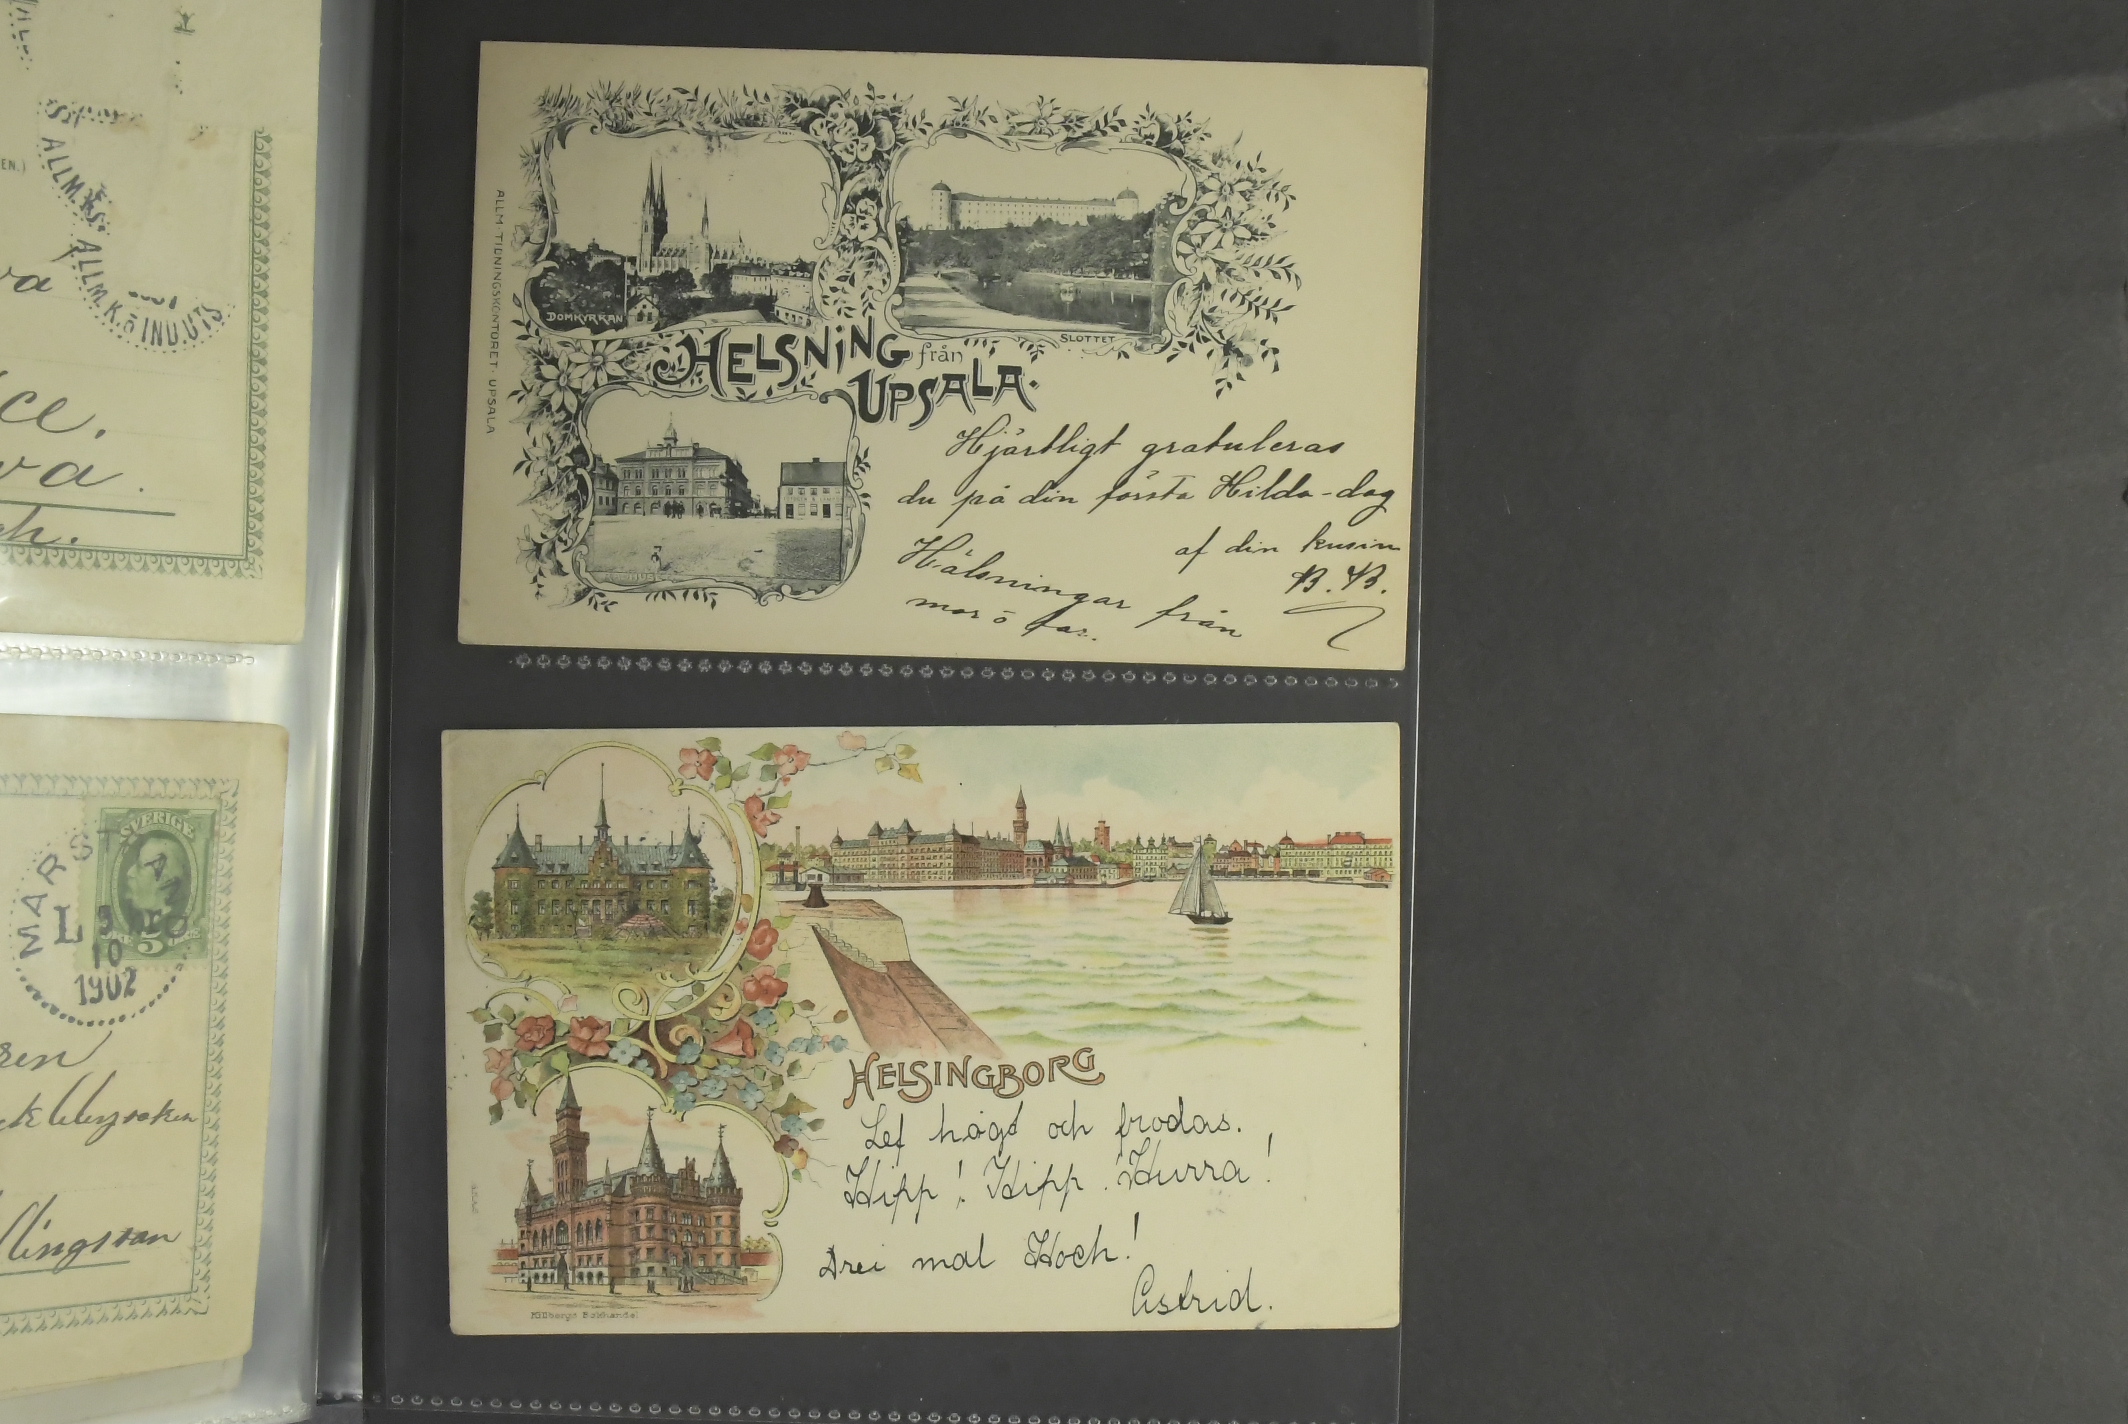 EN.)
ALLM.
ALLM.K.Ö IND.UTS
va
ce.
va.
SVERIGE
MARSTRAND
L
5
10
1902
ken
lingsvan
ALLM. TIDNINGSKONTORET. UPSALA
DOMKYRKAN
SLOTTET
HELSNING från
UPSALA.
Hjärtligt gratuleras
du på din första Hilda-dag
af din kusin
B. B.
Hälsningar från
mor o far.
HELSINGBORG
Lef högt och frodas.
Hipp! Hipp! Hurra!
Drei mal Hoch!
Astrid.
Killbergs Bokhandel